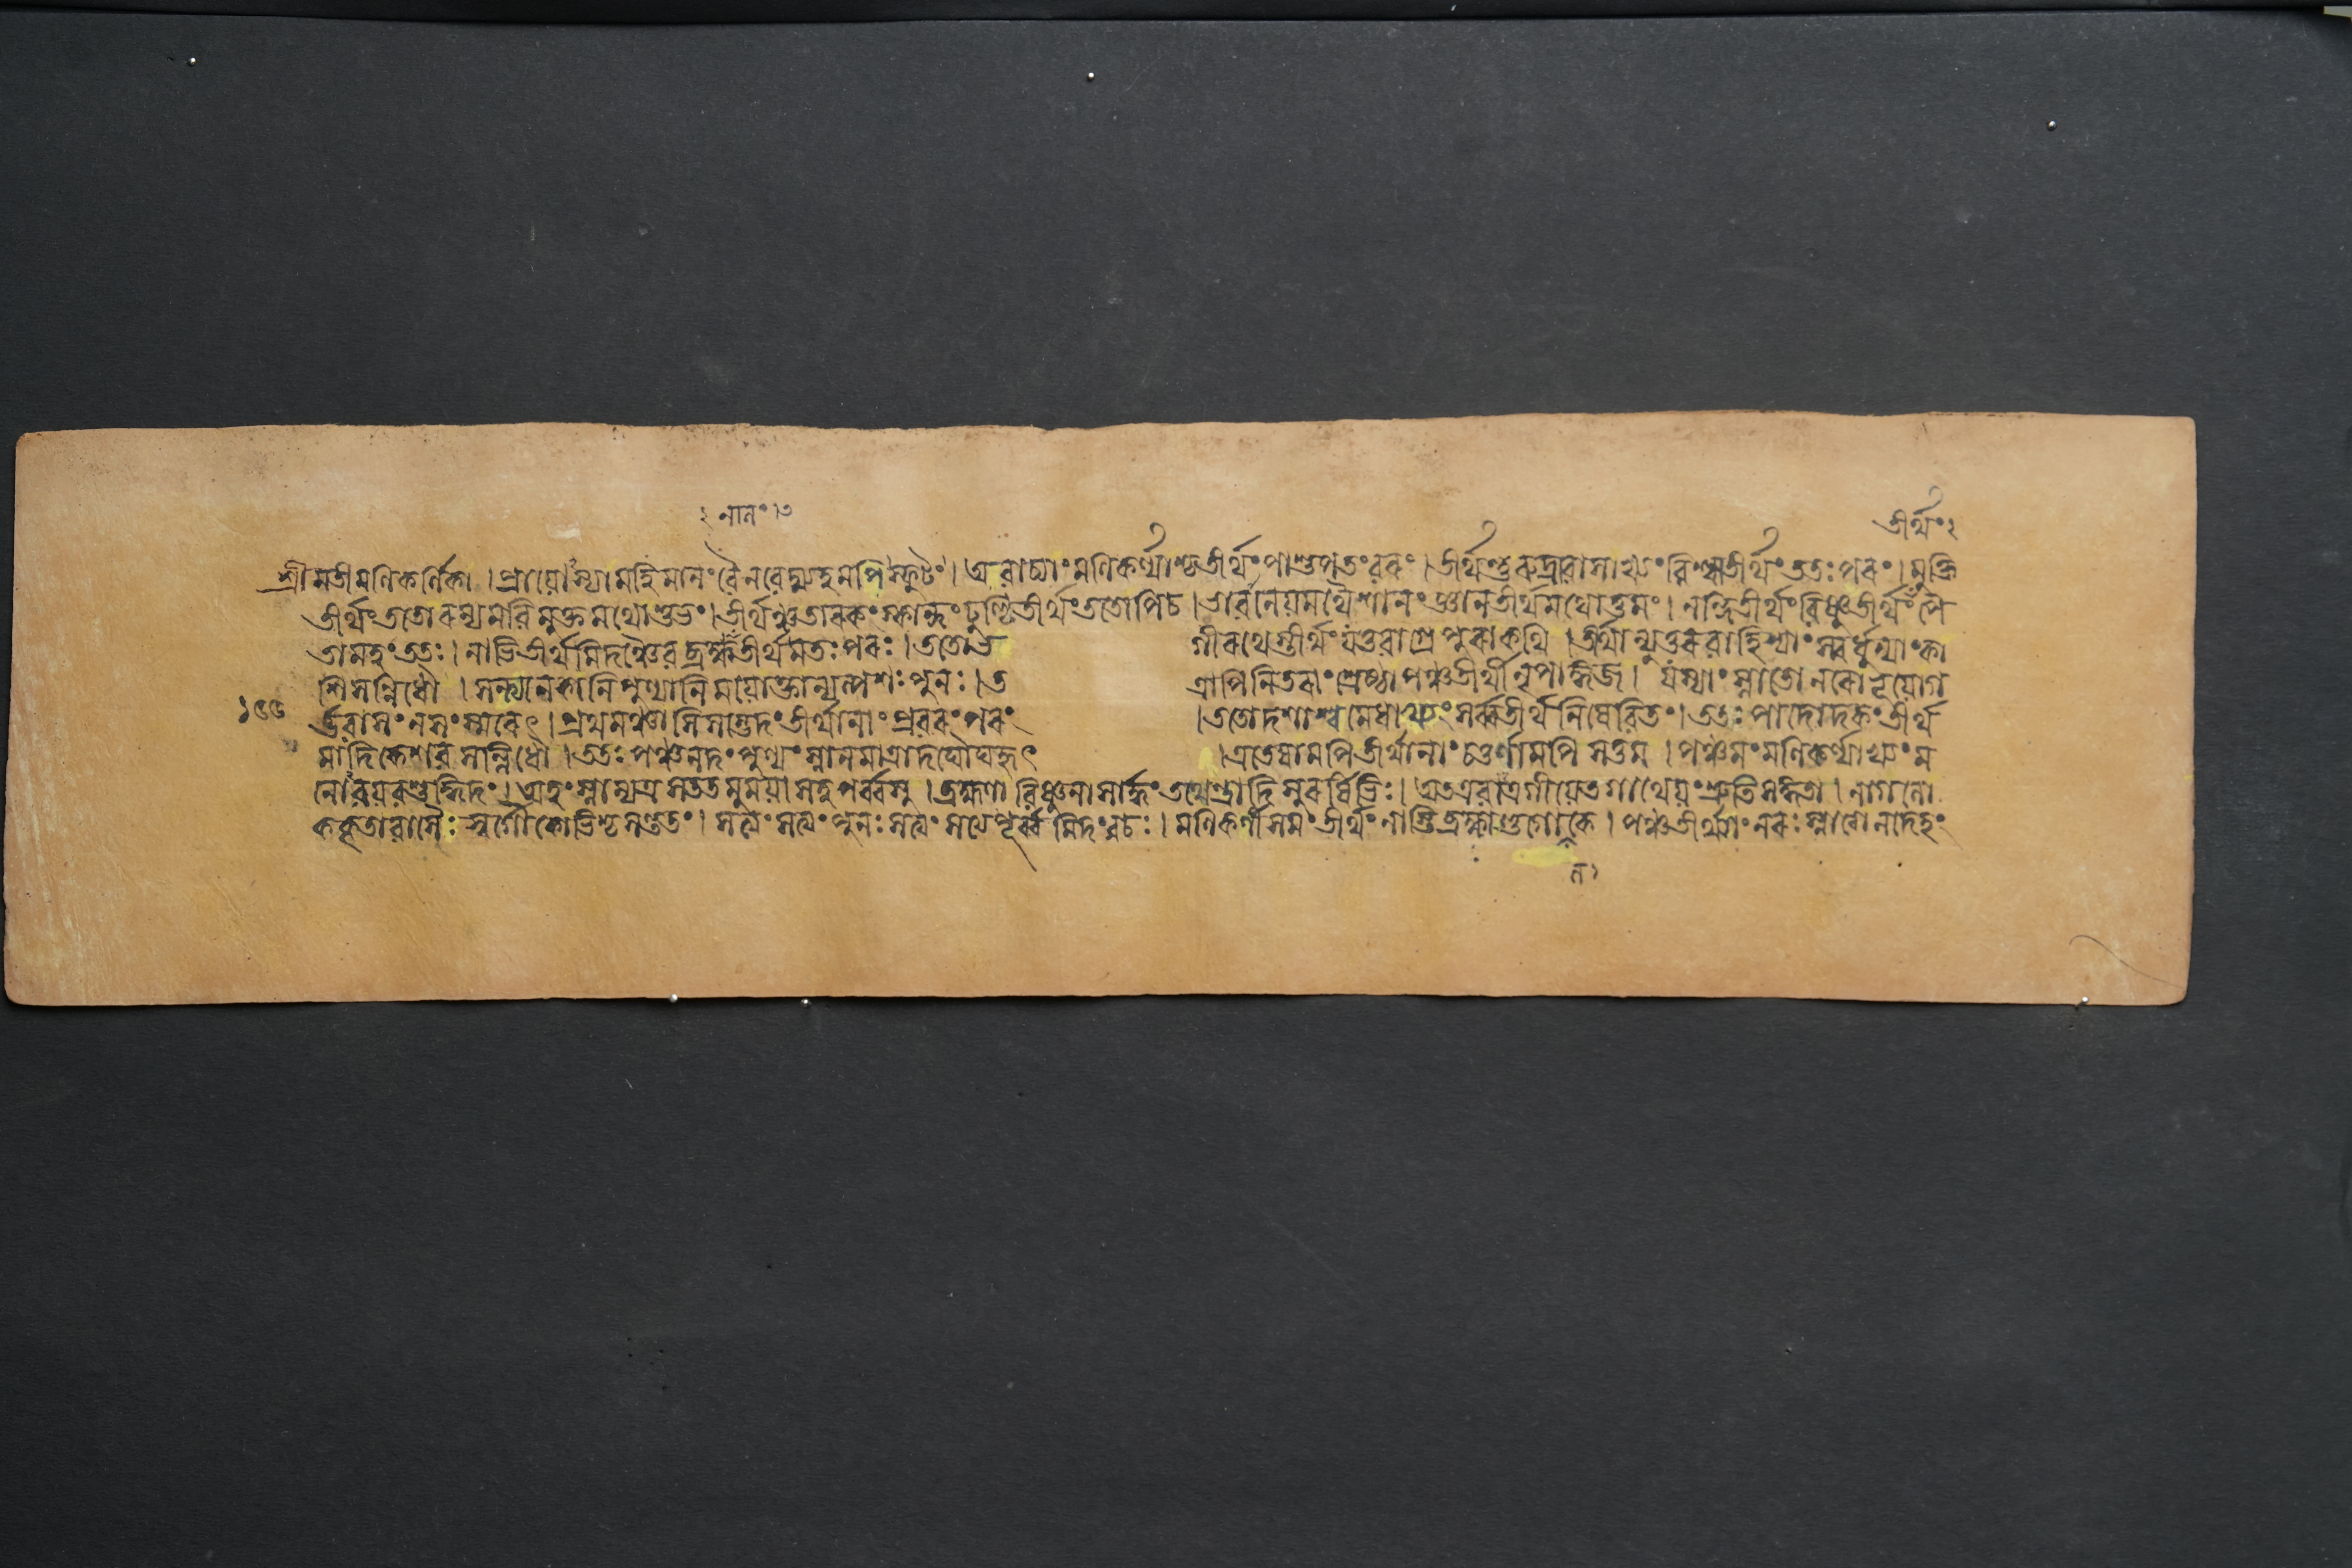 ২ নান॰।৩
তীর্থং২
শ্রীমতীমণিকর্ণিকা।প্রায়োস্যামহিমানংবৈনবেদ্ম্যহমপিস্ফুটং।অবাচ্যাংমণিকর্ণ্যাশ্চতীর্থংপাশুপতংবরং।তীর্থংশুরুদ্রবাসাখ্যংবিশ্বতীর্থংততঃপরং।মুক্তি
তীর্থংততোরম্যমবিমুক্তমথোশুভং।তীর্থঞ্চতারকংস্কান্দংঢুণ্ঢিতীর্থংততোপিচ।ভাবানেয়মথৈশানংজ্ঞানতীর্থমথোত্তমং।নন্দিতীর্থংবিষ্ণুতীর্থংপৈ
তামহংততঃ।নাভিতীর্থমিদঞ্চৈবব্রহ্মতীর্থমতঃপরং।ততোভ গীরথেতীর্থংযত্তবাগ্রেপুরাকথি।তীর্থান্যুত্তরবাহিন্যাংস্বর্ধুন্যাংকা
শিসন্নিধৌ।সন্ত্যনেকানিপুণ্যানিময়োক্তান্যল্পশঃপুনঃ।ত ত্রাপিনিতরাংশ্রেষ্ঠাপঞ্চতীর্থীনৃপাঙ্গজ।যস্যাংস্নাতোনরোভূয়োগ
১৫৫ র্ভবাসংনসংস্মরেৎ।প্রথমঞ্চাসিসম্ভেদংতীর্থানাংপ্রবরংপরং ।ততোদশাশ্বমেধাখ্যংসর্ব্বতীর্থনিষেবিতং।ততঃপাদোদকংতীর্থ
মাদিকেশবসন্নিধৌ।ততঃপঞ্চনদংপুণ্যংস্নানমাত্রাদঘৌঘহৃৎ ।এতেষামপিতীর্থানাংচতুর্ণামপিসত্তম।পঞ্চমংমণিকর্ণ্যাখ্যংম
নোবয়বশুদ্ধিদং।অহংস্নাম্যত্রসততমুময়াসহপর্ব্বসু।ব্রহ্মণাবিষ্ণুনাসার্দ্ধংতথেন্দ্রাদিসুরর্ষিভিঃ।অতএবাত্রগীয়েতগাথেয়ংশ্রুতিসঙ্গিতা।নাগলো
ককৃতাবাসৈঃস্বর্গৌকোভিশ্চসন্ততং।সত্যংসত্যংপুনঃসত্যংসত্যপূর্ব্বমিদংবচঃ।মণিকর্ণীসমংতীর্থংনাস্তিব্রহ্মাণ্ডগোলকে।পঞ্চতীর্থ্যাংনরঃস্নাত্বানদেহং